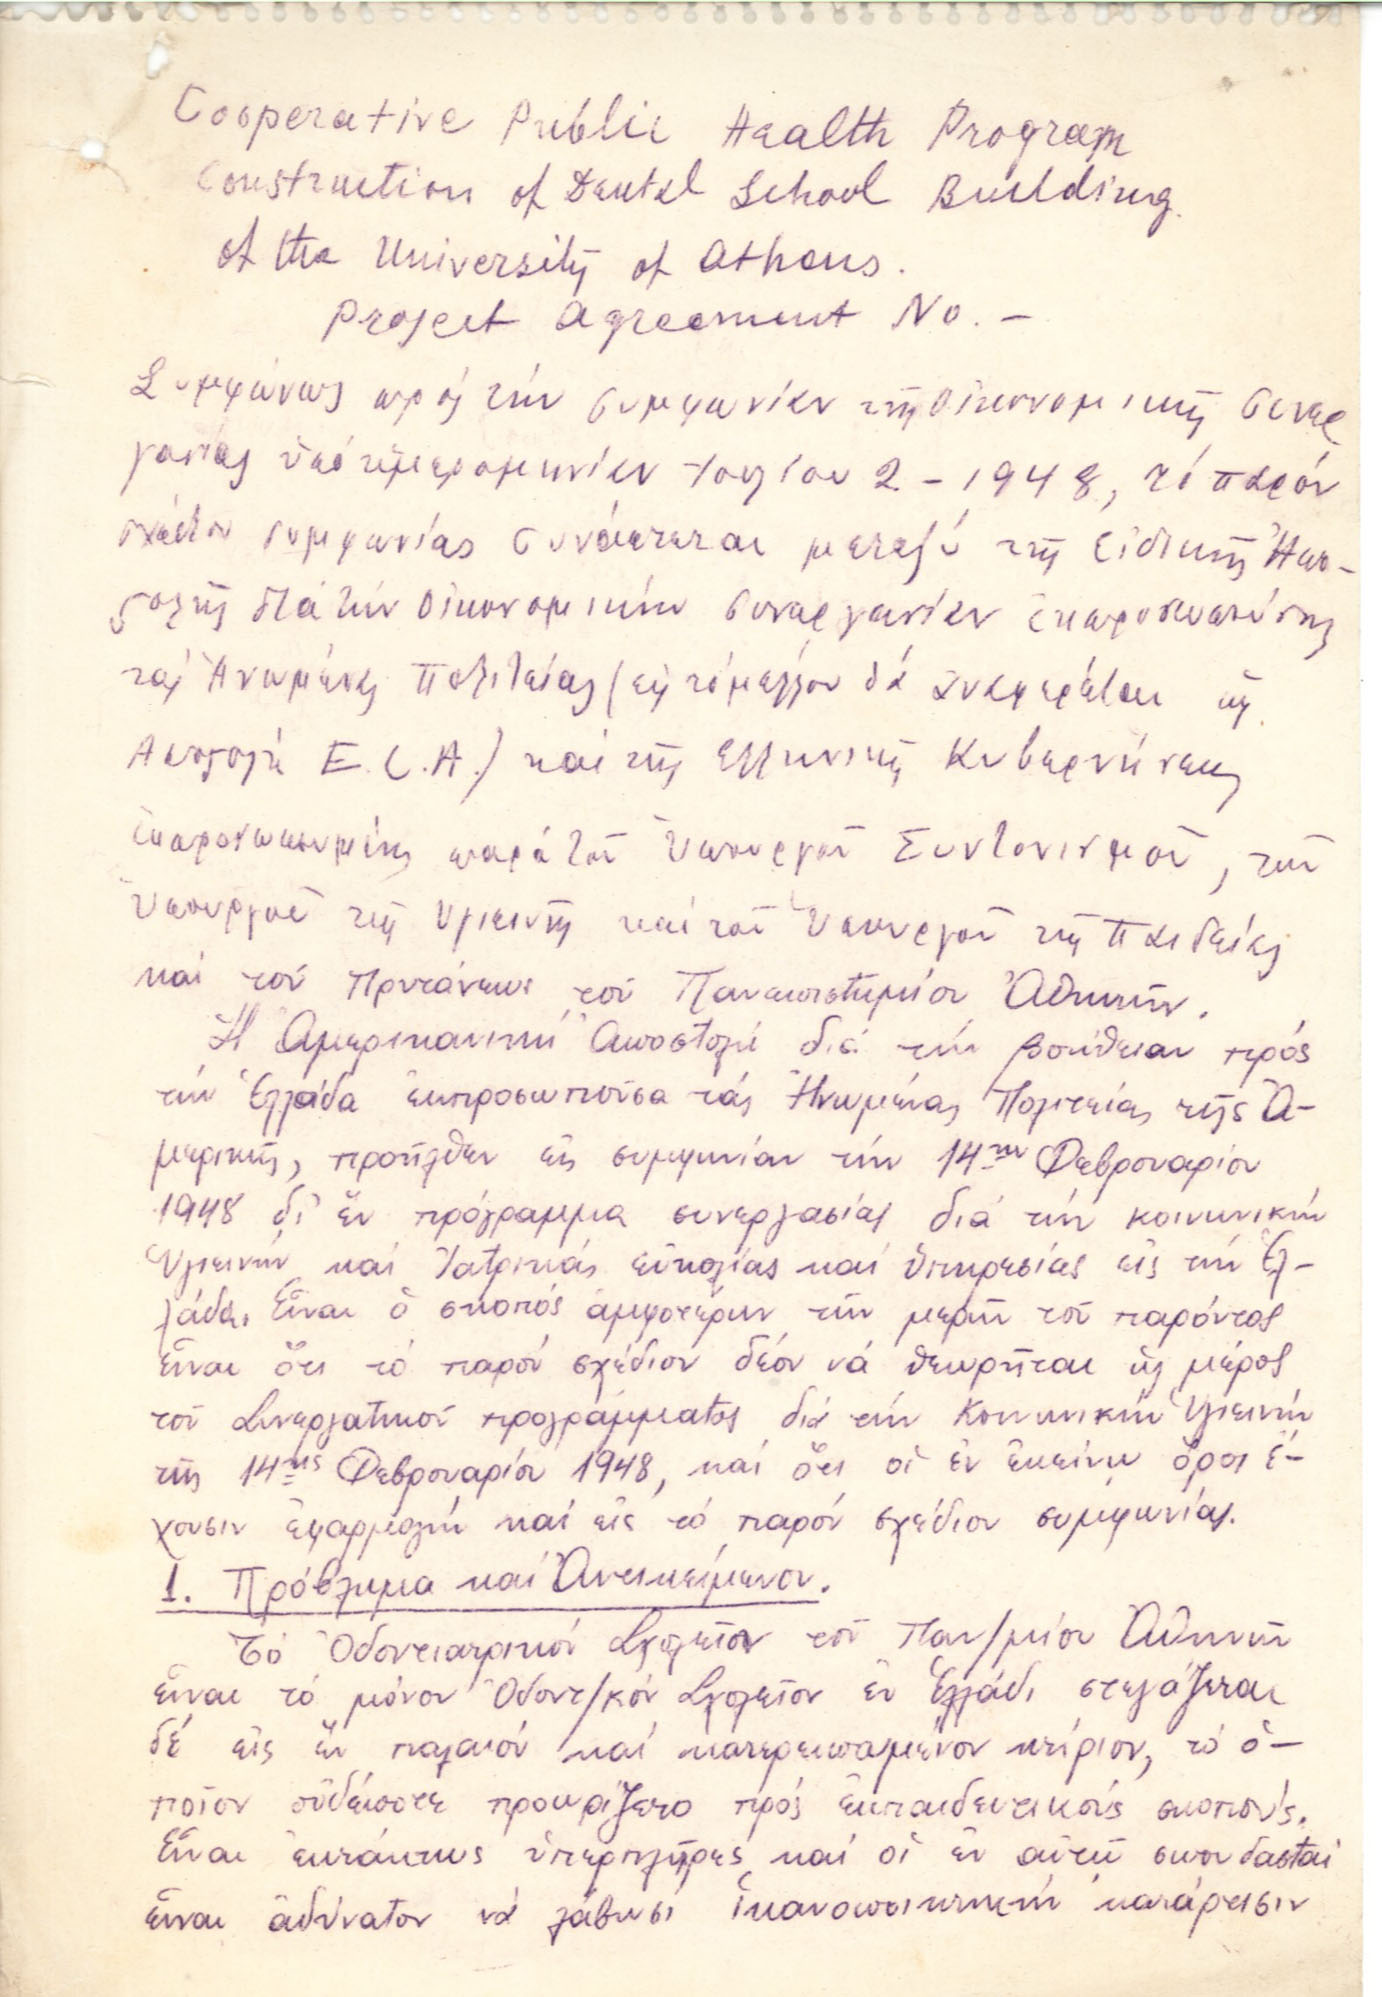 Cooperative Public Health Program
Construction of Dental School Building
of the University of Athens.
Project Agreement No. –
Συμφώνως πρός τήν συμφωνίαν τῆς Οἰκονομικῆς Συνερ
γασίας ὑπό ἡμερομηνίαν Ἰουλίου 2 - 1948, τό παρόν
σχέδιον συμφωνίας συνάπτεται μεταξύ τῆς εἰδικῆς Ἀπο-
στολῆς διά τήν Οἰκονομικήν συνεργασίαν ἐκπροσωπούσης
τάς Ἡνωμένας Πολιτείας (εἰς τό μέλλον θά ἀναφερέται ὡς
Ἀποστολή E.C.A.) καί τῆς Ἑλληνικῆς Κυβερνήσεως
ἐκπροσωπουμένης παρά τοῦ Ὑπουργοῦ Συντονισμοῦ, τοῦ
Ὑπουργοῦ τῆς Ὑγιεινῆς καί τοῦ Ὑπουργοῦ τῆς Παιδείας
καί τοῦ Πρυτάνεως τοῦ Πανεπιστημίου Ἀθηνῶν.
Ἡ Ἀμερικανική Ἀποστολή διά τήν βοήθειαν πρός
τήν Ἑλλάδα ἐκπροσωποῦσα τάς Ἡνωμένας Πολιτείας τῆς Ἀ-
μερικῆς, προῆλθεν εἰς συμφωνίαν τήν 14ην Φεβρουαρίου
1948 δι' ἕν πρόγραμμα συνεργασίας διά τήν κοινωνικήν
Ὑγιεινήν καί Ἰατρικάς εὐκολίας καί ὑπηρεσίας εἰς τήν Ἑλ-
λάδα. Εἶναι ὁ σκοπός ἀμφοτέρων τῶν μερῶν τοῦ παρόντος
εἶναι ὅτι τό παρόν σχέδιον δέον νά θεωρῆται ὡς μέρος
τοῦ Συνεργατικοῦ προγράμματος διά τήν Κοινωνικήν Ὑγιεινήν
τῆς 14ης Φεβρουαρίου 1948, καί ὅτι οἱ ἐν ἐκείνῳ ὅροι ἔ-
χουσιν ἐφαρμογήν καί εἰς τό παρόν σχέδιον συμφωνίας.
1. Πρόβλημα καί Ἀντικείμενον.
Τό Ὀδοντιατρικόν Σχολεῖον τοῦ Παν/μίου Ἀθηνῶν
εἶναι τό μόνον Ὀδοντ/κόν Σχολεῖον ἐν Ἑλλάδι στεγάζεται
δέ εἰς ἕν παλαιόν καί κατερειπωμένον κτίριον, τό ὁ-
ποῖον οὐδέποτε προωρίζετο πρός ἐκπαιδευτικούς σκοπούς.
Εἶναι ἐκτάκτως ὑπερπλῆρες καί οἱ ἐν αὐτῷ σπουδασταί
εἶναι ἀδύνατον νά λάβωσι ἱκανοποιητικήν κατάρτισιν